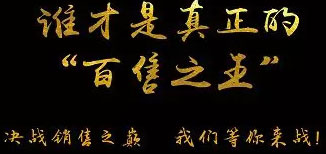 谁才是真正的
“百售之王”
决战销售之巅 我们等你来战!